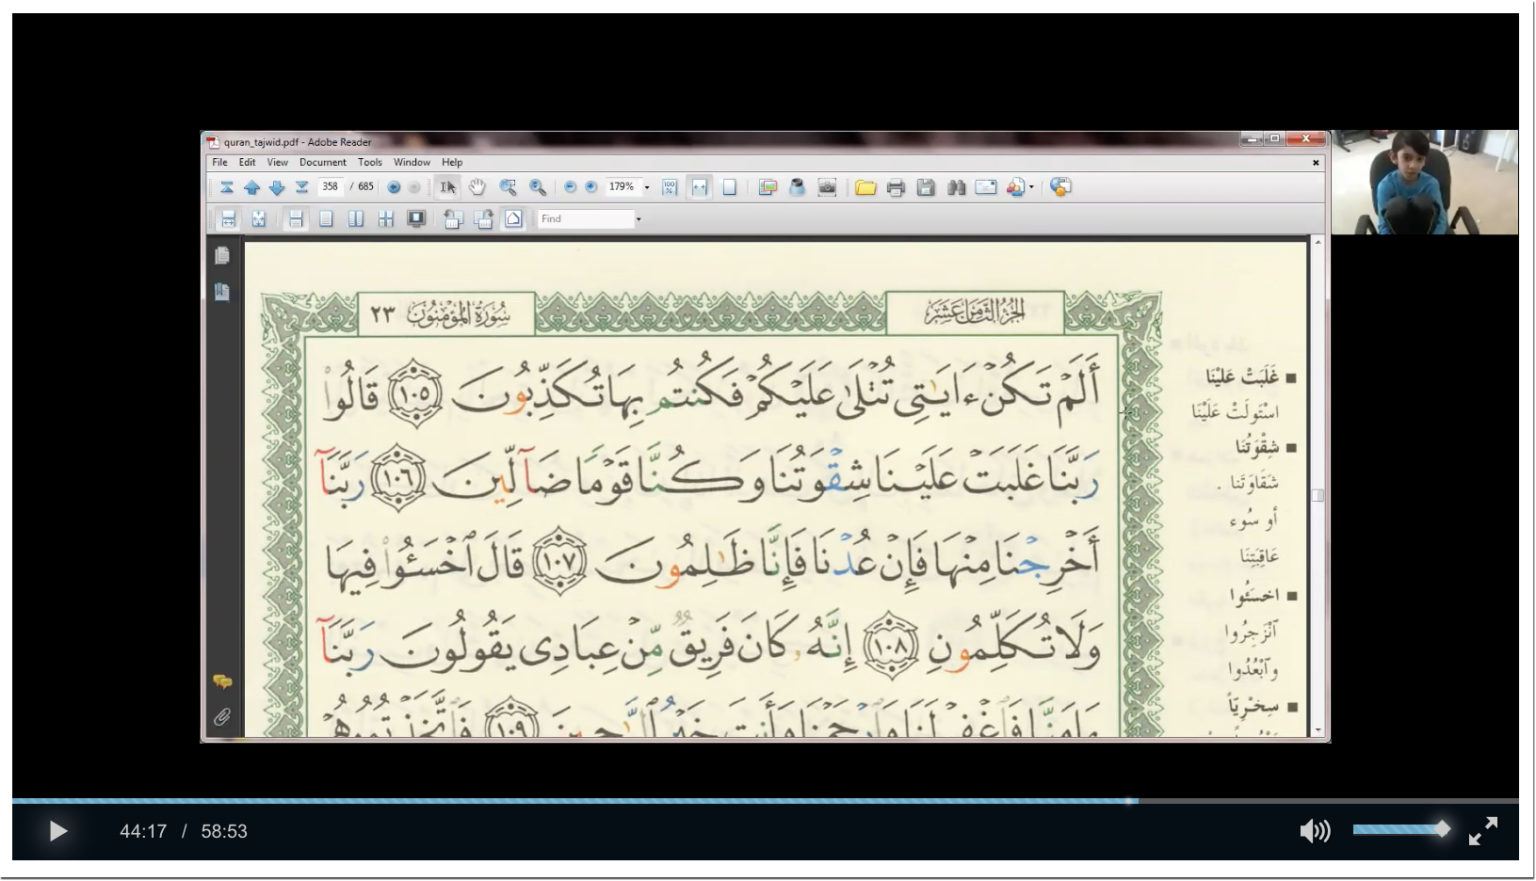 quran_tajwid.pdf - Adobe Reader
File Edit View Document Tools Window Help
358 / 685 179%
Find
سُورَةُ المُؤْمِنُون ٢٣
الجُزْءُ الثَّامِنَ عَشَرَ
أَلَمْ تَكُنْ ءَايَٰتِى تُتْلَىٰ عَلَيْكُمْ فَكُنتُم بِهَا تُكَذِّبُونَ ١٠٥ قَالُوا۟
رَبَّنَا غَلَبَتْ عَلَيْنَا شِقْوَتُنَا وَكُنَّا قَوْمًا ضَآلِّينَ ١٠٦ رَبَّنَآ
أَخْرِجْنَا مِنْهَا فَإِنْ عُدْنَا فَإِنَّا ظَٰلِمُونَ ١٠٧ قَالَ ٱخْسَـُٔوا۟ فِيهَا
وَلَا تُكَلِّمُونِ ١٠٨ إِنَّهُۥ كَانَ فَرِيقٌ مِّنْ عِبَادِى يَقُولُونَ رَبَّنَآ
ءَامَنَّا فَٱغْفِرْ لَنَا وَٱرْحَمْنَا وَأَنتَ خَيْرُ ٱلرَّٰحِمِينَ ١٠٩ فَٱتَّخَذْتُمُوهُمْ
■ غَلَبَتْ عَلَيْنَا
اسْتَولَتْ عَلَيْنَا
■ شِقْوَتُنَا
شَقَاوَتَنا .
أو سُوء
عَاقِبَتِنَا
■ اخسَئُوا
آنْزَجِرُوا
وَآبْعُدُوا
■ سِخْرِيّاً
44:17 / 58:53